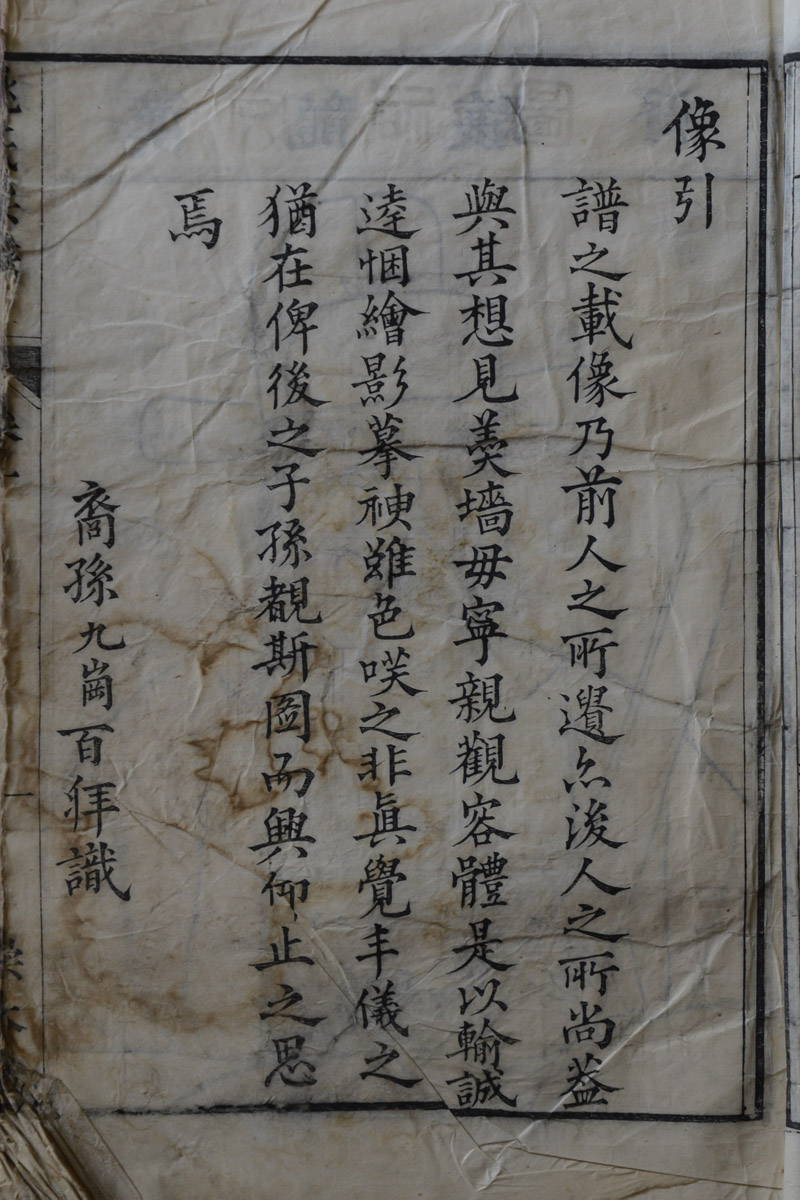 像引
譜之載像乃前人之所遺亦後人之所尚葢
與其想見羹墻毋寧親觀容體是以輸誠
逵悃繪影摹神雖色嘆之非眞覺丰儀之
猶在俾後之子孫覩斯圖而興仰止之思
焉
裔孫九崗百拜識